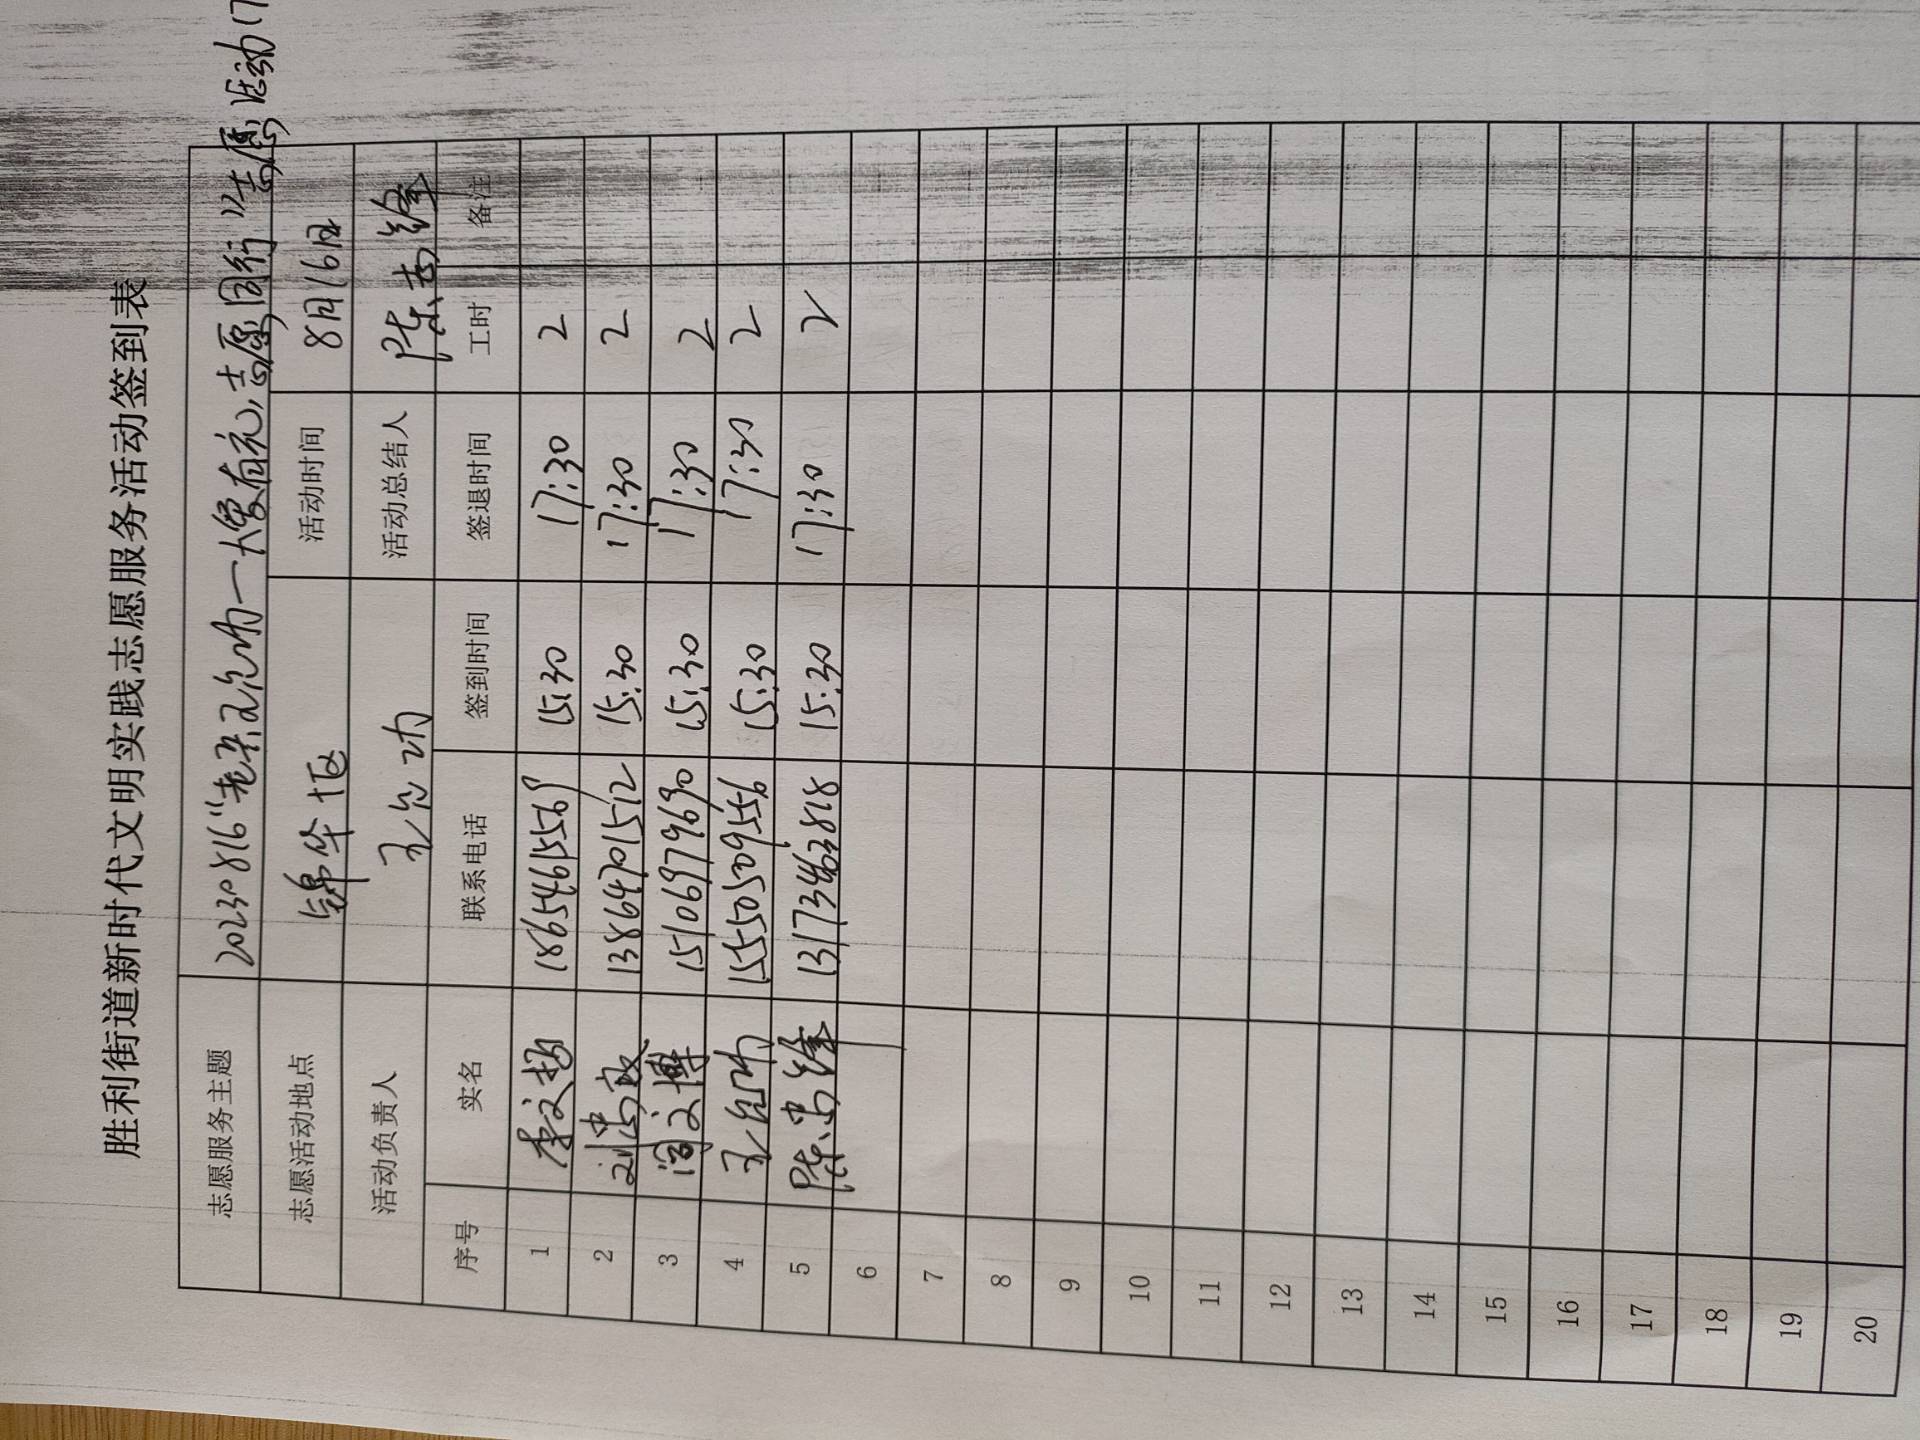 胜利街道新时代文明实践志愿服务活动签到表
志愿服务主题 20230816“ 志愿同行”志愿活动(7
志愿活动地点 锦华十区 活动时间 8月16日
活动负责人 孔令功 活动总结人 陈忠锋
序号 实名 联系电话 签到时间 签退时间 工时 备注
1 李文杨 18654615569 15:30 17:30 2
2 刘崇敏 13864701512 15:30 17:30 2
3 闫文博 15106979690 15:30 17:30 2
4 孔令功 15550509556 15:30 17:30 2
5 陈忠锋 13173463818 15:30 17:30 2
6
7
8
9
10
11
12
13
14
15
16
17
18
19
20